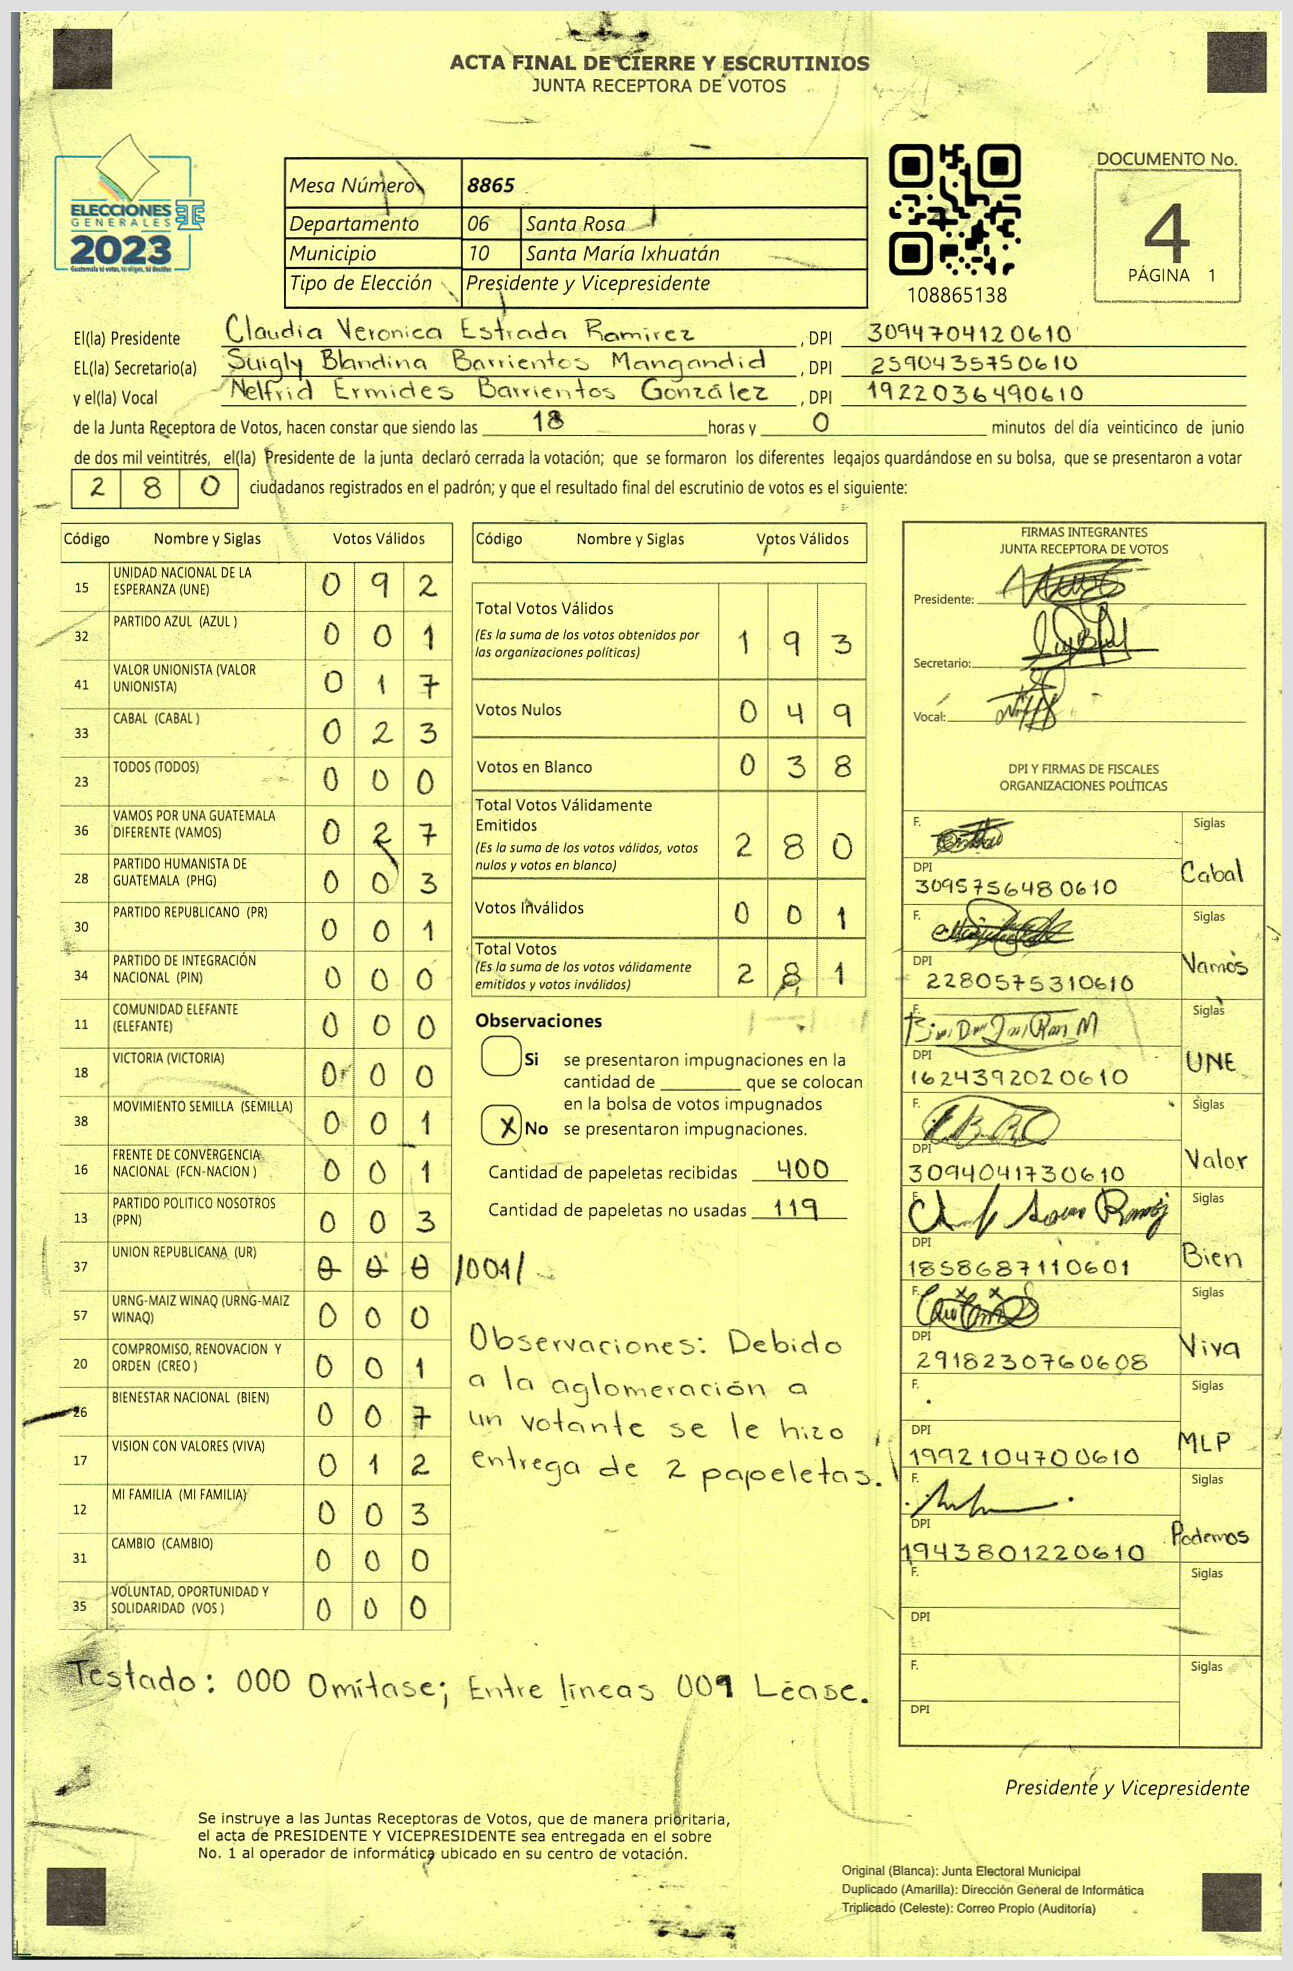 ACTA FINAL DE CIERRE Y ESCRUTINIOS
JUNTA RECEPTORA DE VOTOS
ELECCIONES
GENERALES
2023
Guatemala tú votas, tú eliges, tú decides
Mesa Número 8865
Departamento 06 Santa Rosa
Municipio 10 Santa María Ixhuatán
Tipo de Elección Presidente y Vicepresidente
108865138
DOCUMENTO No.
4
PÁGINA 1
El(la) Presidente Claudia Veronica Estrada Ramirez, DPI 3094704120610
EL(la) Secretario(a) Suigly Blandina Barrientos Mangandid, DPI 2590435750610
y el(la) Vocal Nelfrid Ermides Barrientos González, DPI 1922036490610
de la Junta Receptora de Votos, hacen constar que siendo las 18 horas y 0 minutos del día veinticinco de junio
de dos mil veintitrés, el(la) Presidente de la junta declaró cerrada la votación; que se formaron los diferentes legajos guardándose en su bolsa, que se presentaron a votar
280 ciudadanos registrados en el padrón; y que el resultado final del escrutinio de votos es el siguiente:
Código Nombre y Siglas Votos Válidos
15 UNIDAD NACIONAL DE LA ESPERANZA (UNE) 092
32 PARTIDO AZUL (AZUL ) 001
41 VALOR UNIONISTA (VALOR UNIONISTA) 017
33 CABAL (CABAL ) 023
23 TODOS (TODOS) 000
36 VAMOS POR UNA GUATEMALA DIFERENTE (VAMOS) 027
28 PARTIDO HUMANISTA DE GUATEMALA (PHG) 003
30 PARTIDO REPUBLICANO (PR) 001
34 PARTIDO DE INTEGRACIÓN NACIONAL (PIN) 000
11 COMUNIDAD ELEFANTE (ELEFANTE) 000
18 VICTORIA (VICTORIA) 000
38 MOVIMIENTO SEMILLA (SEMILLA) 001
16 FRENTE DE CONVERGENCIA NACIONAL (FCN-NACION ) 001
13 PARTIDO POLITICO NOSOTROS (PPN) 003
37 UNION REPUBLICANA (UR) 000 /001/
57 URNG-MAIZ WINAQ (URNG-MAIZ WINAQ) 000
20 COMPROMISO, RENOVACION Y ORDEN (CREO ) 001
26 BIENESTAR NACIONAL (BIEN) 007
17 VISION CON VALORES (VIVA) 012
12 MI FAMILIA (MI FAMILIA) 003
31 CAMBIO (CAMBIO) 000
35 VOLUNTAD, OPORTUNIDAD Y SOLIDARIDAD (VOS ) 000
Código Nombre y Siglas Votos Válidos
Total Votos Válidos 193
(Es la suma de los votos obtenidos por
las organizaciones políticas)
Votos Nulos 049
Votos en Blanco 038
Total Votos Válidamente
Emitidos 280
(Es la suma de los votos válidos, votos
nulos y votos en blanco)
Votos Inválidos 001
Total Votos 281
(Es la suma de los votos válidamente
emitidos y votos inválidos)
Observaciones
Si se presentaron impugnaciones en la
cantidad de ________ que se colocan
en la bolsa de votos impugnados
X No se presentaron impugnaciones.
Cantidad de papeletas recibidas 400
Cantidad de papeletas no usadas 119
Observaciones: Debido
a la aglomeración a
un votante se le hizo
entrega de 2 papeletas.
FIRMAS INTEGRANTES
JUNTA RECEPTORA DE VOTOS
Presidente:
Secretario:
Vocal:
DPI Y FIRMAS DE FISCALES
ORGANIZACIONES POLÍTICAS
F. Siglas
DPI Cabal
3095756480610
F. Siglas
DPI Vamos
2280575310610
F. Siglas
DPI UNE
1624392020610
F. Siglas
DPI Valor
3094041730610
F. Siglas
DPI Bien
1858687110601
F. Siglas
DPI Viva
2918230760608
F. Siglas
DPI MLP
1992104700610
F. Siglas
DPI Podemos
1943801220610
F. Siglas
DPI
F. Siglas
DPI
Testado: 000 Omítase; Entre líneas 001 Léase.
Presidente y Vicepresidente
Se instruye a las Juntas Receptoras de Votos, que de manera prioritaria,
el acta de PRESIDENTE Y VICEPRESIDENTE sea entregada en el sobre
No. 1 al operador de informática ubicado en su centro de votación.
Original (Blanca): Junta Electoral Municipal
Duplicado (Amarilla): Dirección General de Informática
Triplicado (Celeste): Correo Propio (Auditoría)